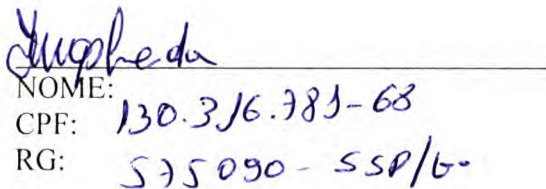 NOME:
CPF: 130.316.781-68
RG: 575090 - SSP/Go